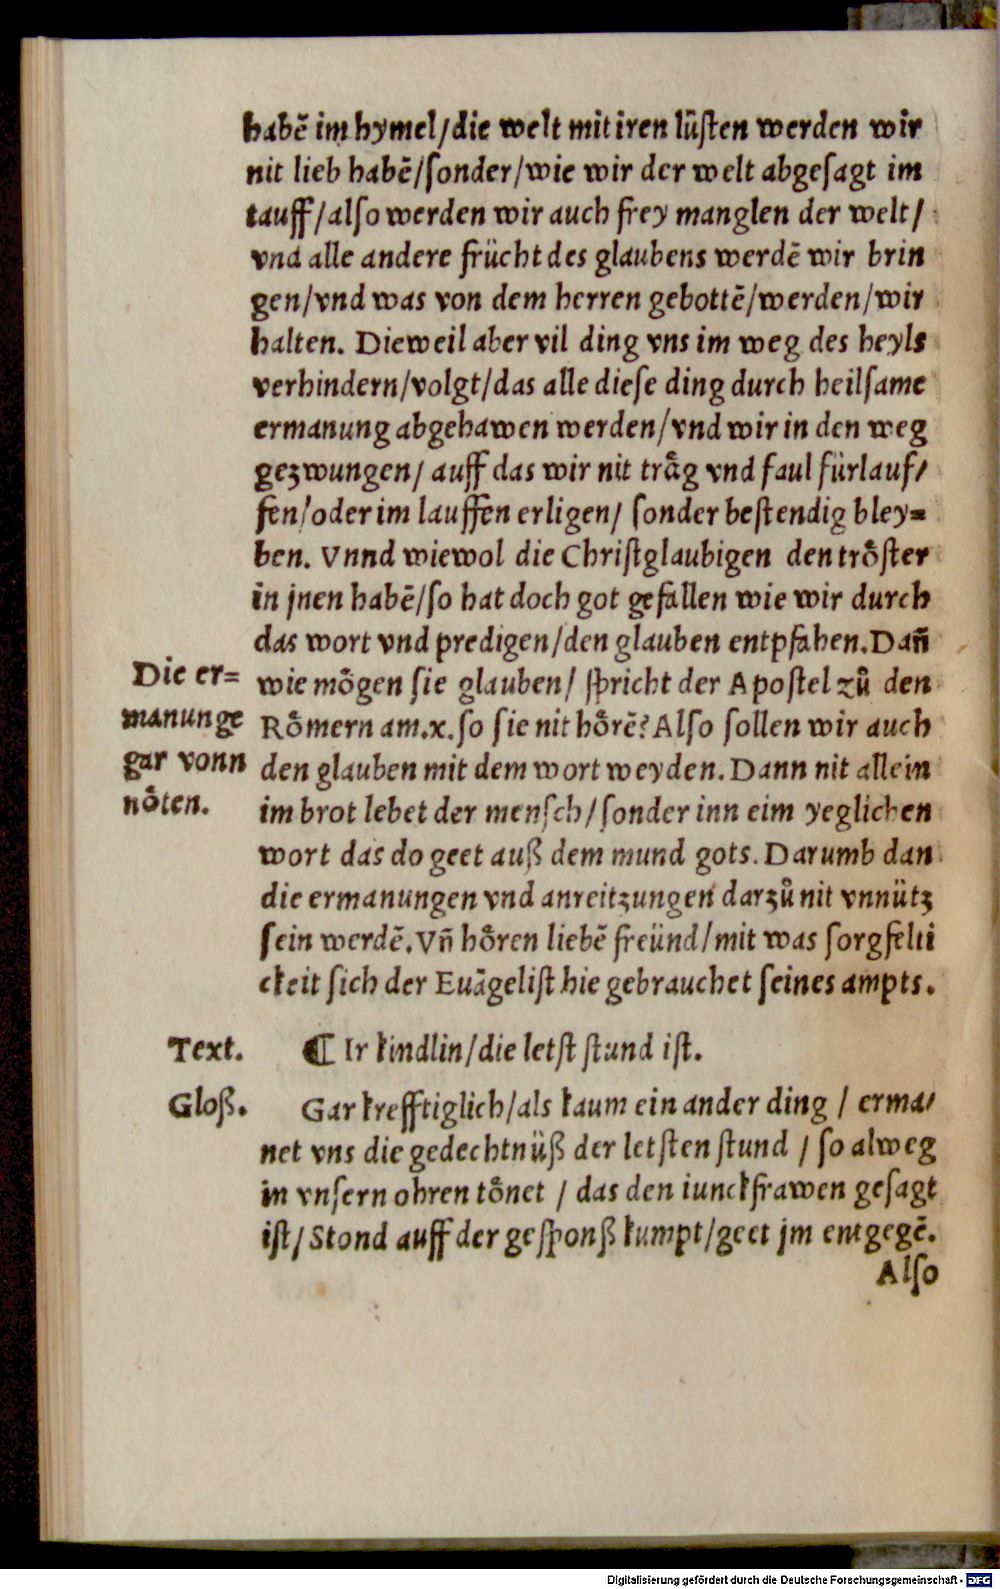 habē im hymel/die welt mit iren lüsten werden wir
nit lieb habē/sonder/wie wir der welt abgesagt im
tauff/also werden wir auch frey manglen der welt/
vnd alle andere frücht des glaubens werdē wir brin
gen/vnd was von dem herren gebottē/werden/wir
halten. Dieweil aber vil ding vns im weg des heyls
verhindern/volgt/das alle diese ding durch heilsame
ermanung abgehawen werden/vnd wir in den weg
gezwungen/ auff das wir nit traͤg vnd faul fürlauf/
fen/oder im lauffen erligen/ sonder bestendig bley=
ben. Vnnd wiewol die Christglaubigen den troͤster
in jnen habē/so hat doch got gefallen wie wir durch
das wort vnd predigen/den glauben entpfahen. Dañ
wie moͤgen sie glauben/ spricht der Apostel zů den
Roͤmern am.x. so sie nit hoͤrē? Also sollen wir auch
den glauben mit dem wort weyden. Dann nit allein
im brot lebet der mensch/sonder inn eim yeglichen
wort das do geet auß dem mund gots. Darumb dan
die ermanungen vnd anreitzungen darzů nit vnnütz
sein werdē. Vñ hoͤren liebē freünd/mit was sorgfelti
ckeit sich der Euāgelist hie gebrauchet seines ampts.
Die er=
manunge
gar vonn
noͤten.
Text.
¶ Ir kindlin/die letst stund ist.
Gloß.
Gar krefftiglich/als kaum ein ander ding / erma/
net vns die gedechtnüß der letsten stund / so alweg
in vnsern ohren toͤnet / das den iunckfrawen gesagt
ist/ Stond auff der gesponß kumpt/geet jm entgegē.
Also
Digitalisierung gefördert durch die Deutsche Forschungsgemeinschaft - DFG